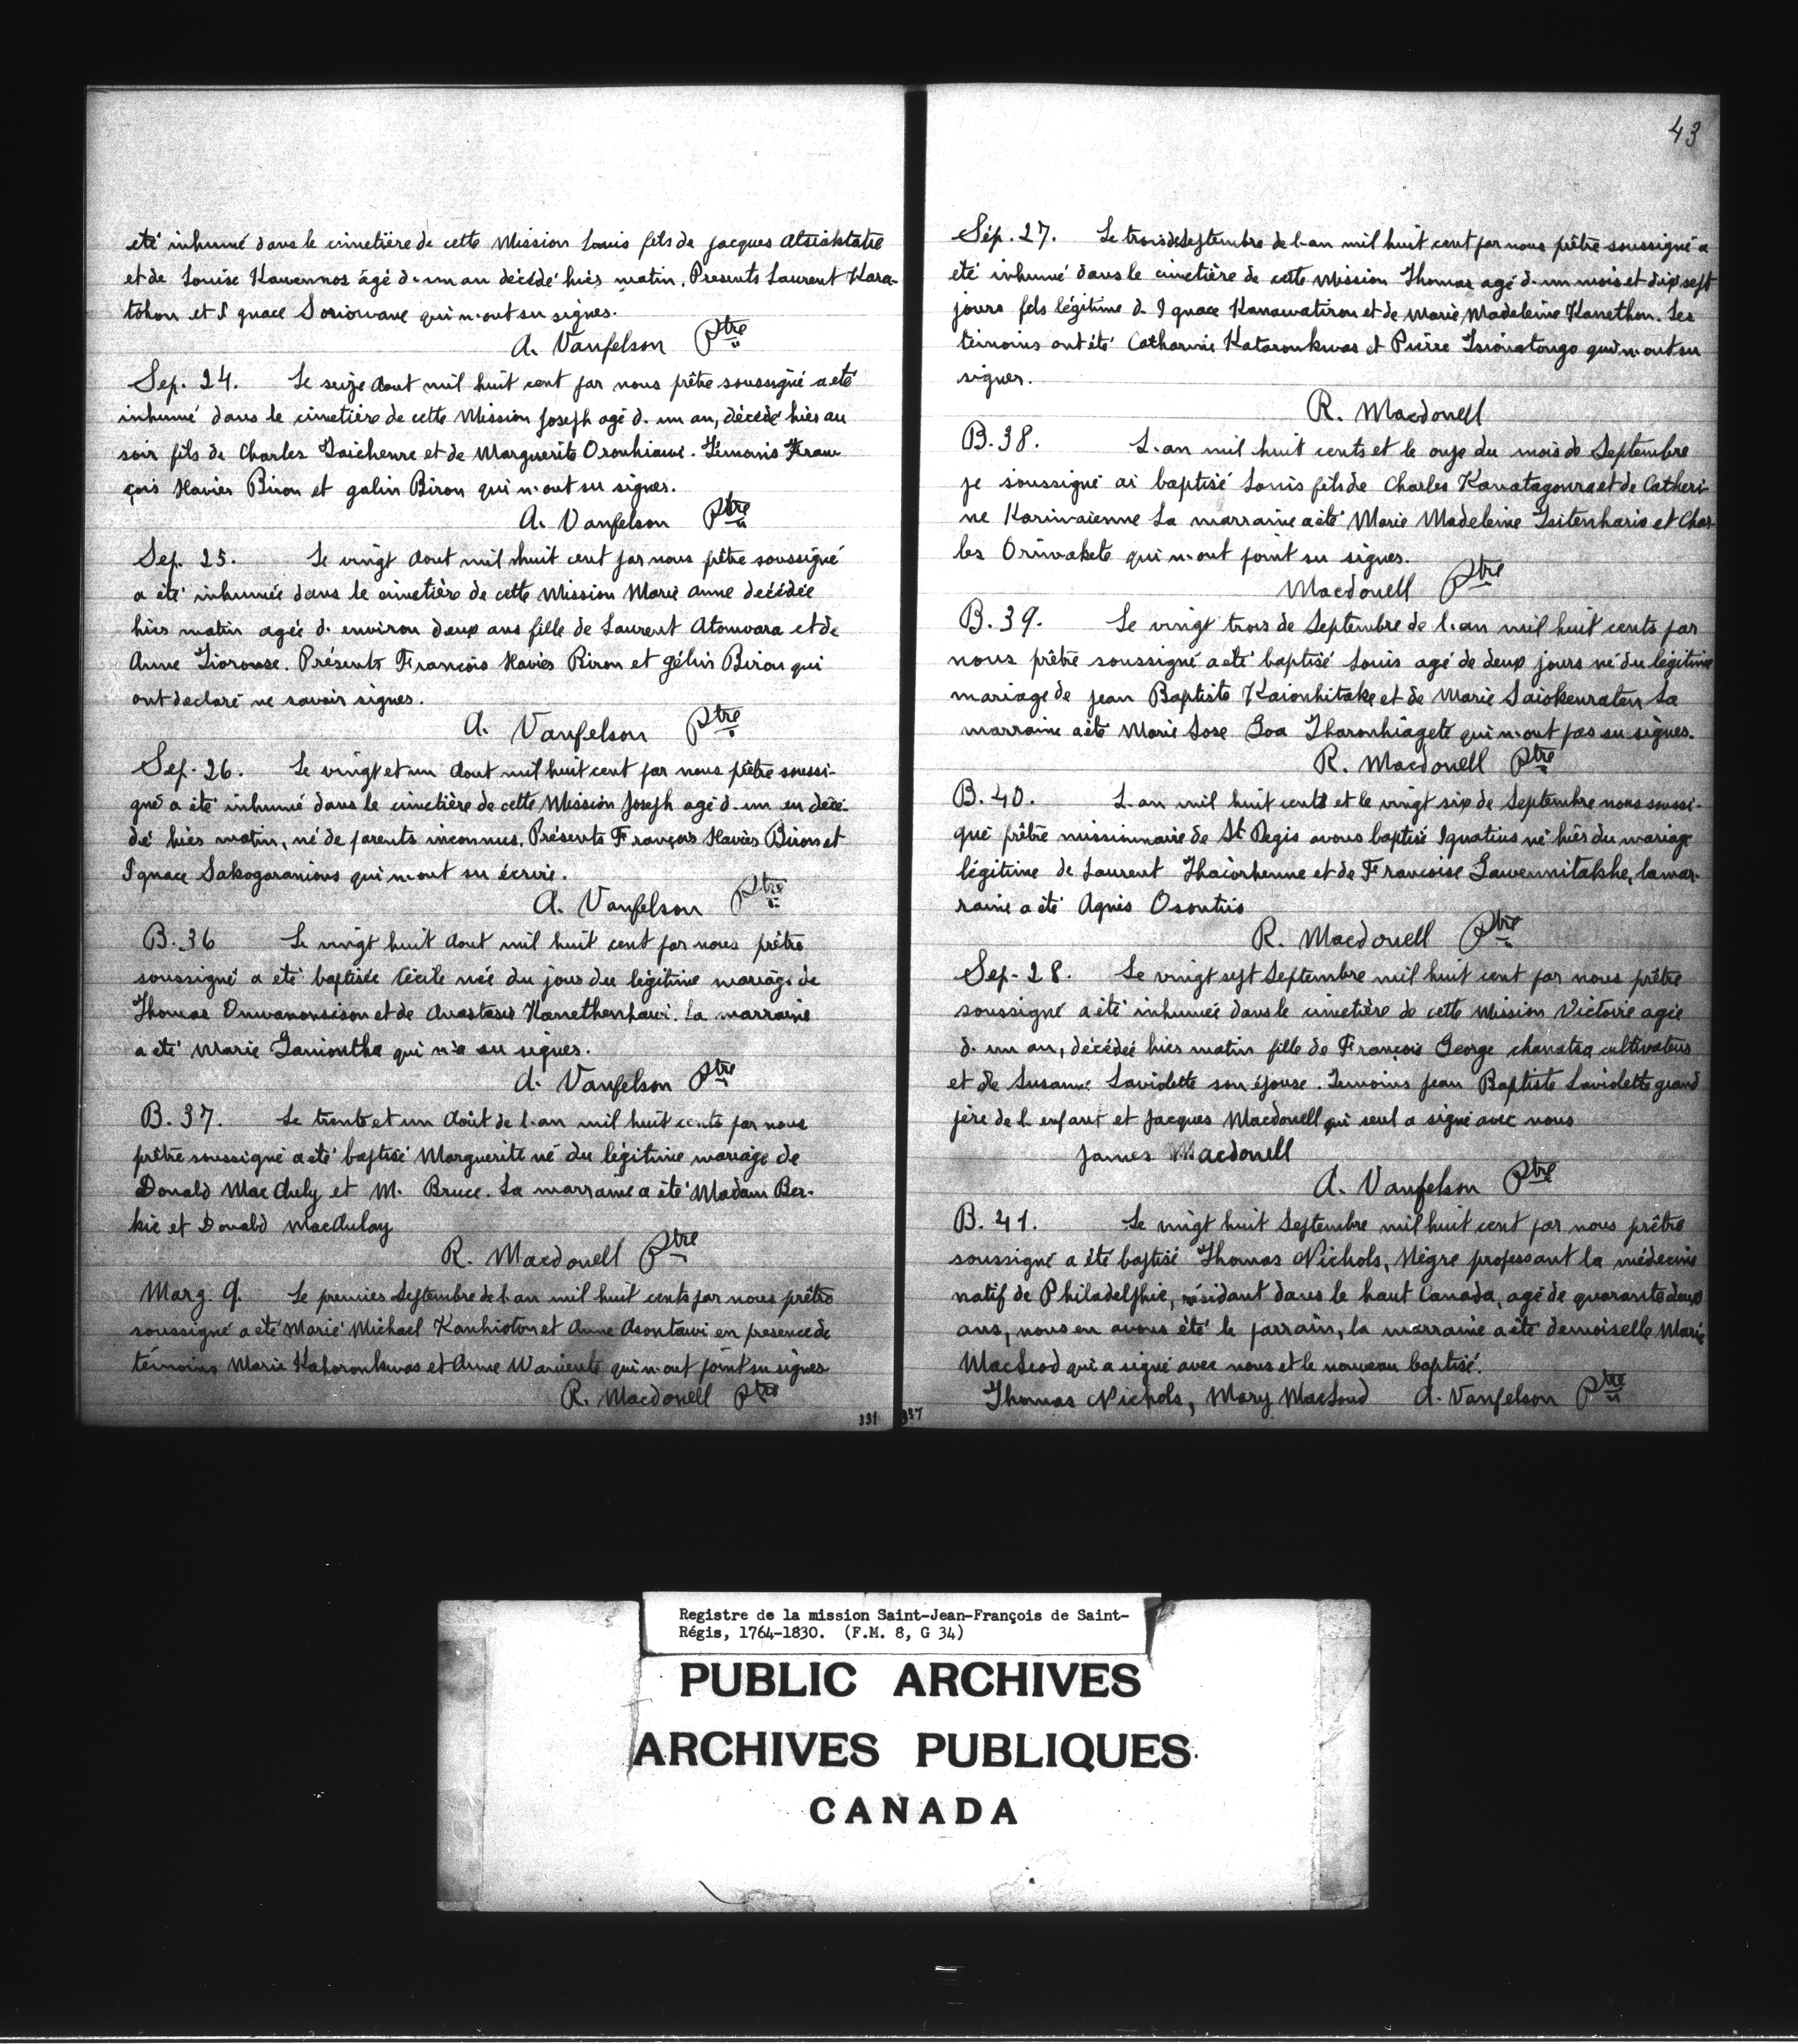 été inhumé dans le cimetière de cette Mission Louis fils de jacques Atsiakstatie
et de Louise Kawennos âgé d. un an décédé hier matin. Presents Laurent Kara-
tohon et Ignace Soriowane qui n. ont su signer.
A. Vanfelson Ptre
Sep. 24. Le seize Aout mil huit cent par nous prêtre soussigné a eté
inhumé dans le cimetière de cette Mission Joseph agé d. un an, décédé hier au
soir fils de Charles Taichenre et de Marguerite Oronhiawi. Témoins Fran
çois Xavier Biron et galin Biron qui n. ont su signer.
A. Vanfelson Ptre
Sep. 25. Le vingt Aout mil huit cent par nous prêtre soussigné
a été inhumée dans le cimetière de cette Mission Marie Anne décédée
hier matin agée d. environ deux ans fille de Laurent Atonwara et de
Anne Tiorouse. Présents François Xavier Biron et gélin Biron qui
ont declaré ne savoir signer.
A. Vanfelson Ptre
Sep. 26. Le vingt et un Aout mil huit cent par nous prêtre soussi-
gné a été inhumé dans le cimetière de cette Mission Joseph agé d. un an décé-
dé hier matin, né de parents inconnus. Présents François Xavier Biron et
Ignace Sakogaranions qui n. ont su écrire.
A. Vanfelson Ptre
B. 36 Le vingt huit Aout mil huit cent par nous prêtre
soussigné a eté baptisée Cécile née du jour du légitime mariage de
Thomas Onwanonsison et de Anastasie Kanethenhawi. La marraine
a eté Marie Ganiontha qui n'a su signer.
A. Vanfelson Ptre
B. 37. Le trente et un Août de l. an mil huit cents par nous
prêtre soussigné a eté baptisé Marguerite né du légitime mariage de
Donald MacAuly et M. Bruce. La marraine a été Madam Ber-
kie et Donald MacAulay
R. Macdonell Ptre
Marg. 9. Le premier Septembre de l. an mil huit cents par nous prêtre
soussigné a eté Marié Michael Kanhioton et Anne Asontawi en presence de
témoins Marie Kahoronkwas et Anne Wariente qui n. ont point su signer
R. Macdonell Ptre
331
43
Sép. 27. Le trois de Septembre de l. an mil huit cent par nous prêtre soussigné a
été inhumé dans le cimetière de cette Mission Thomas agé d. un mois et dix sept
jours fils légitime d. Ignace Kanawatiron et de Marie Madeleine Kanethon. Les
témoins ont été Catharine Kataronkwas et Pierre Tsionatongo qui n. ont su
signer.
R. Macdonell
B. 38. L. an mil huit cents et le onze du mois de Septembre
je soussigné ai baptisé Louis fils de Charles Kanatagonra et de Catheri-
ne Kariwaienne La marraine a eté Marie Madeleine Tsitenharie et Char-
les Oriwakete qui n. ont point su signer.
Macdonell Ptre
B. 39. Le vingt trois de Septembre de l. an mil huit cents par
nous prêtre soussigné a eté baptisé Louis agé de deux jours né du légitime
mariage de jean Baptiste Kaionhitake et de Marie Saiokenraten La
marraine a eté Marie Lose Goa Tharonhiagete qui n. ont pas su signer.
R. Macdonell Ptre
B. 40. L. an mil huit cents et le vingt six de Septembre nous soussi-
gné prêtre missionnaire de St Regis avons baptisé Ignatius né hier du mariage
légitime de Laurent Thaiorhenne et de Francoise Gawennitakhe, la mar-
raine a été Agnès Osontiio
R. Macdonell Ptre
Sep. 28. Le vingt sept Septembre mil huit cent par nous prêtre
soussigné a été inhumée dans le cimetière de cette Mission Victoire agée
d. un an, décédée hier matin fille de François George chanatsa cultivateur
et de Susanne Laviolette son épouse. Temoins Jean Baptiste Laviolette grand
père de l. enfant et Jacques Macdonell qui seul a signé avec nous
James Macdonell
A. Vanfelson Ptre
B. 41. Le vingt huit Septembre mil huit cent par nous prêtre
soussigné a été baptisé Thomas Nichols, Nègre professant la médecine
natif de Philadelphie, résidant dans le haut Canada, agé de quarante deux
ans, nous en avons été le parrain, la marraine a été demoiselle Marie
MacLeod qui a signé avec nous et le nouveau baptisé.
Thomas Nichols, Mary MacLoud A. Vanfelson Ptre
337
Registre de la mission Saint-Jean-François de Saint-
Régis, 1764-1830. (F.M. 8, G 34)
PUBLIC ARCHIVES
ARCHIVES PUBLIQUES
CANADA